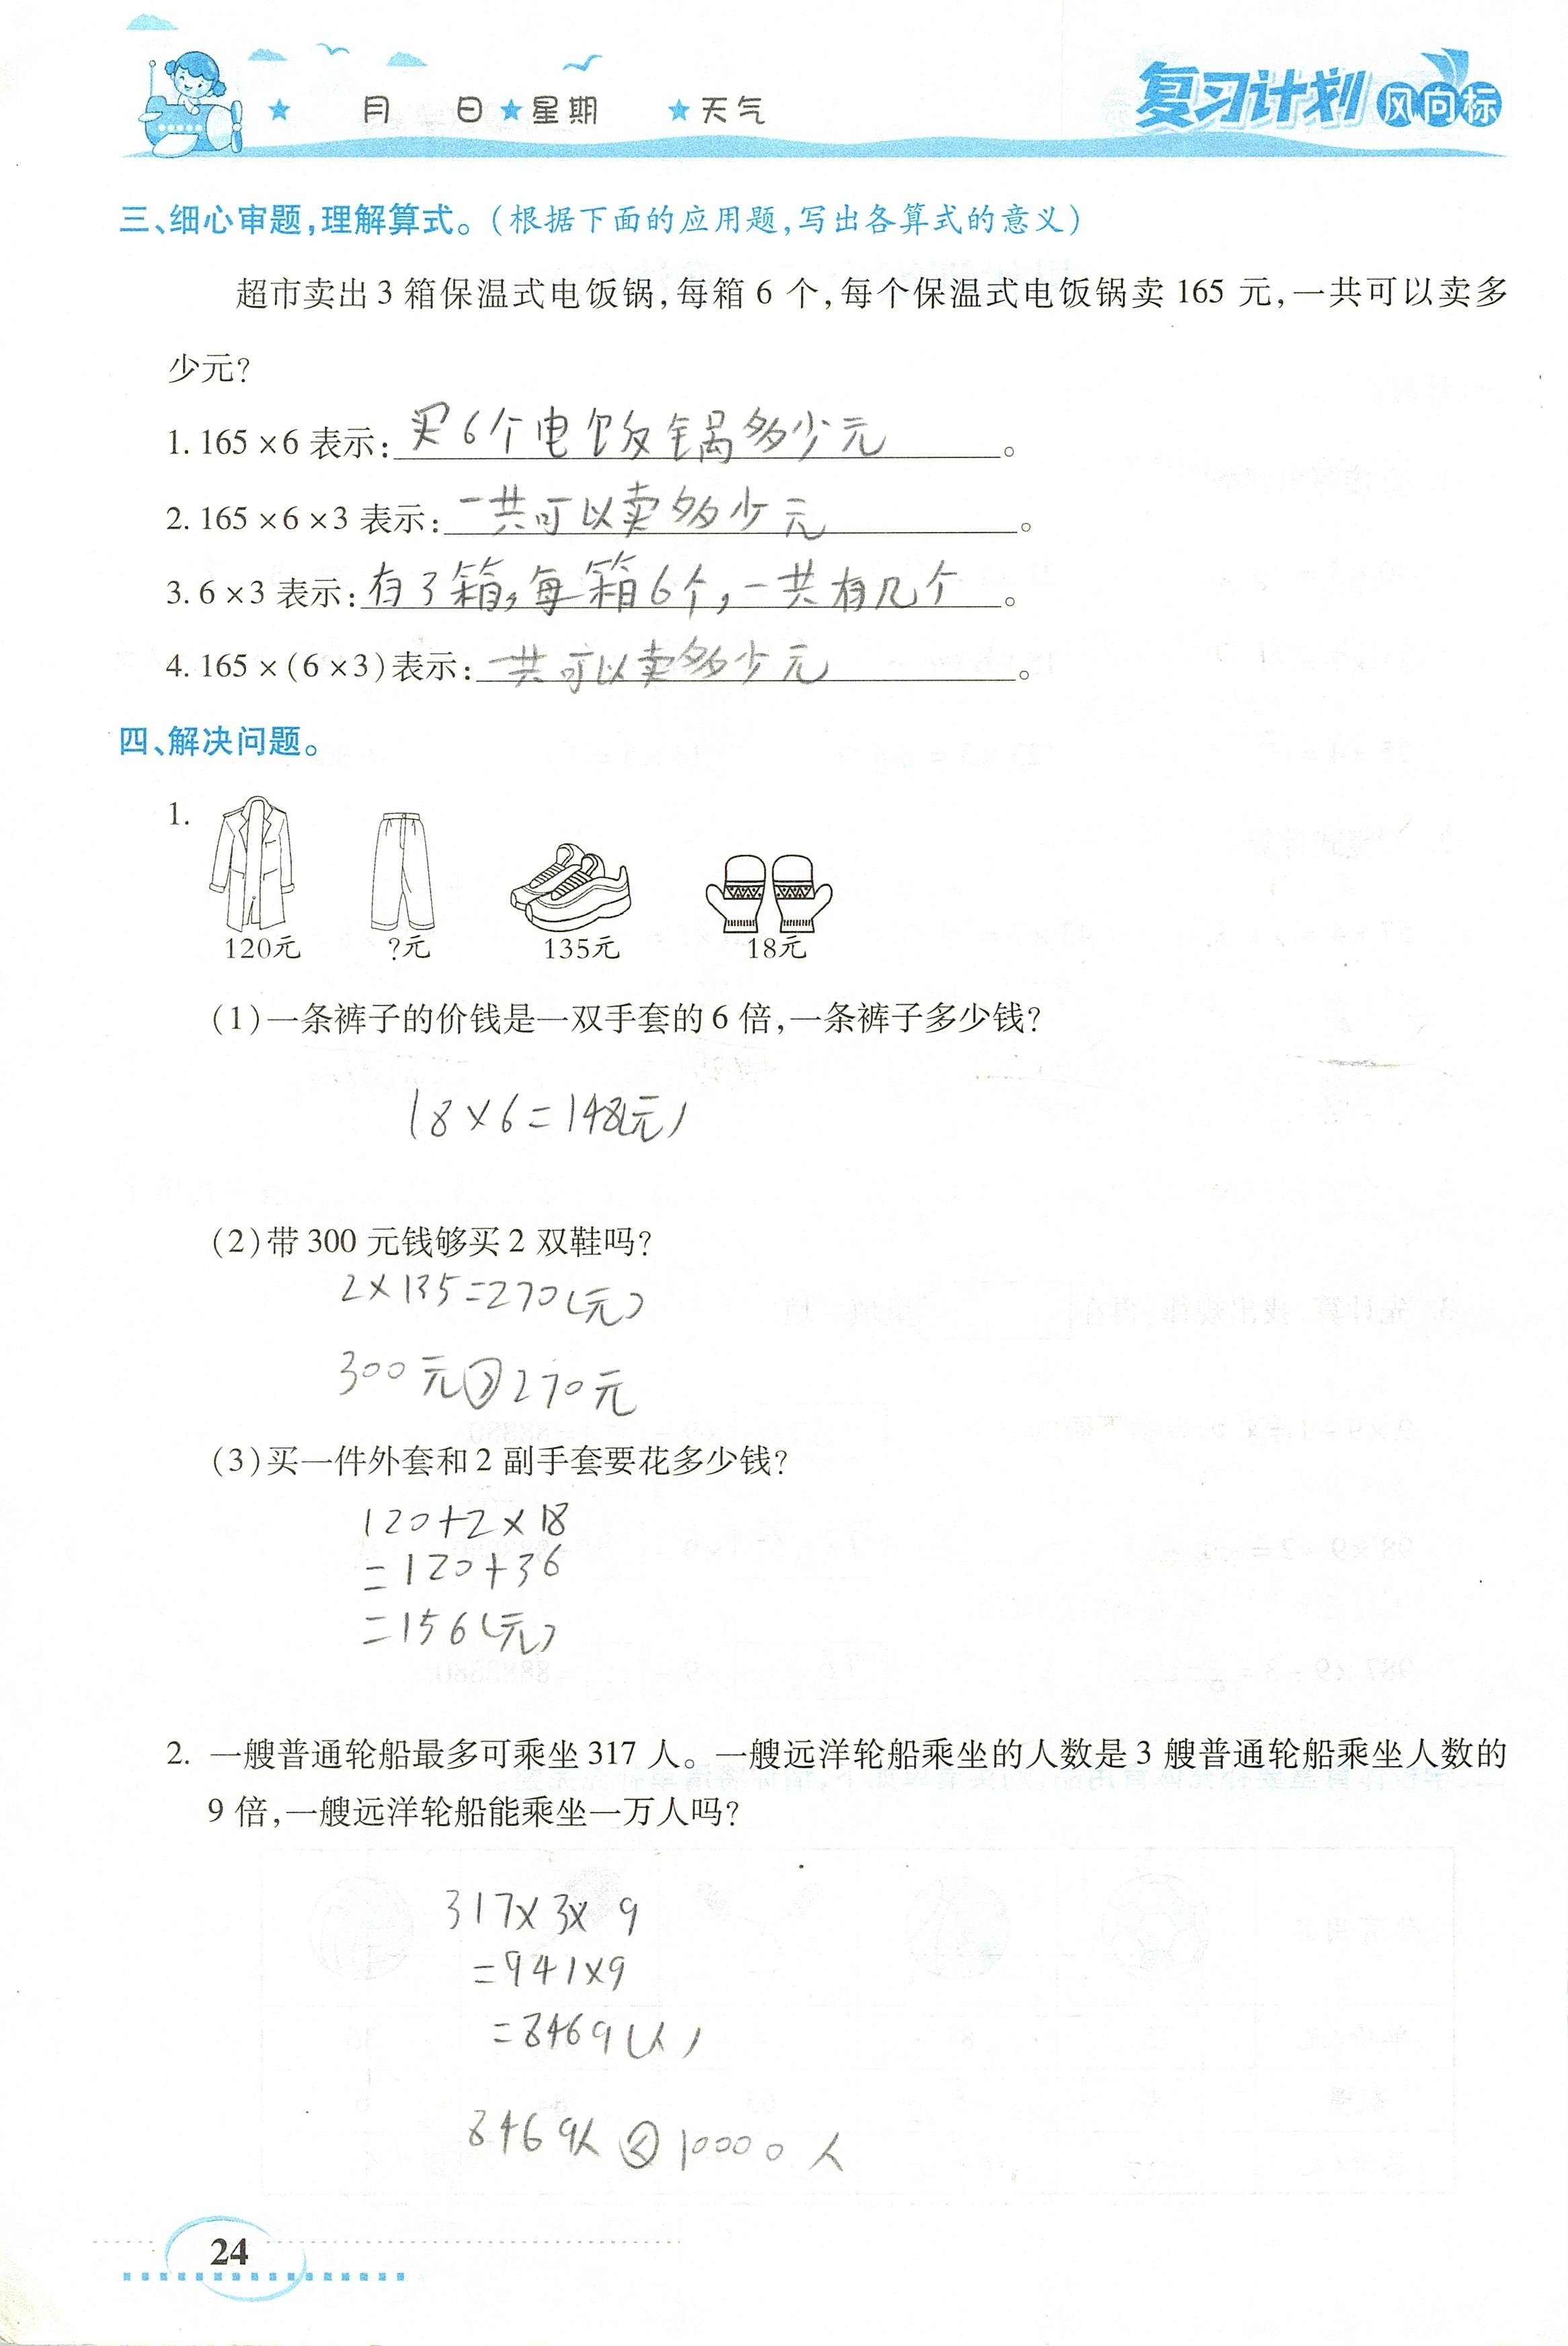 月 日 星期 天气
复习计划 风向标
三、细心审题,理解算式。(根据下面的应用题,写出各算式的意义)
超市卖出3箱保温式电饭锅,每箱6个,每个保温式电饭锅卖165元,一共可以卖多
少元?
1. 165×6表示:买6个电饭锅多少元。
2. 165×6×3表示:一共可以卖多少元。
3. 6×3表示:有3箱,每箱6个,一共有几个。
4. 165×(6×3)表示:一共可以卖多少元。
四、解决问题。
1.
120元 ?元 135元 18元
(1)一条裤子的价钱是一双手套的6倍,一条裤子多少钱?
18×6=148(元)
(2)带300元钱够买2双鞋吗?
2×135=270(元)
300元>270元
(3)买一件外套和2副手套要花多少钱?
120+2×18
=120+36
=156(元)
2. 一艘普通轮船最多可乘坐317人。一艘远洋轮船乘坐的人数是3艘普通轮船乘坐人数的
9倍,一艘远洋轮船能乘坐一万人吗?
317×3×9
=941×9
=8469(人)
8469人<10000人
24